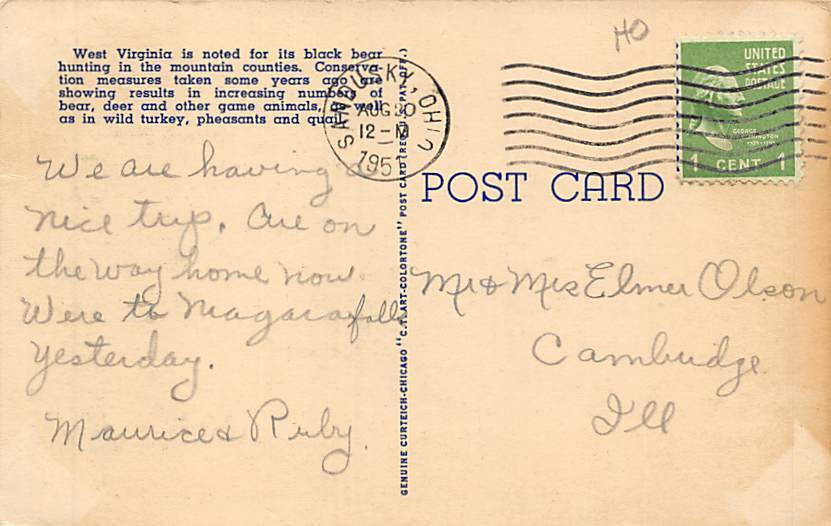 HO
West Virginia is noted for its black bear
hunting in the mountain counties. Conserva-
tion measures taken some years ago are
showing results in increasing numbers of
bear, deer and other game animals, as well
as in wild turkey, pheasants and quail.
SANDUSKY, OHIO
AUG 20
12-M
195
UNITED
STATES
POSTAGE
GEORGE
WASHINGTON
1 CENT 1
POST CARD
GENUINE CURTEICH-CHICAGO "C.T. ART-COLORTONE" POST CARD (REG. U.S. PAT. OFF.)
We are having a
nice trip. Are on
the way home now.
Were to Niagara falls
yesterday.
Maurice & Ruby.
Mr & Mrs Elmer Olson
Cambridge
Ill